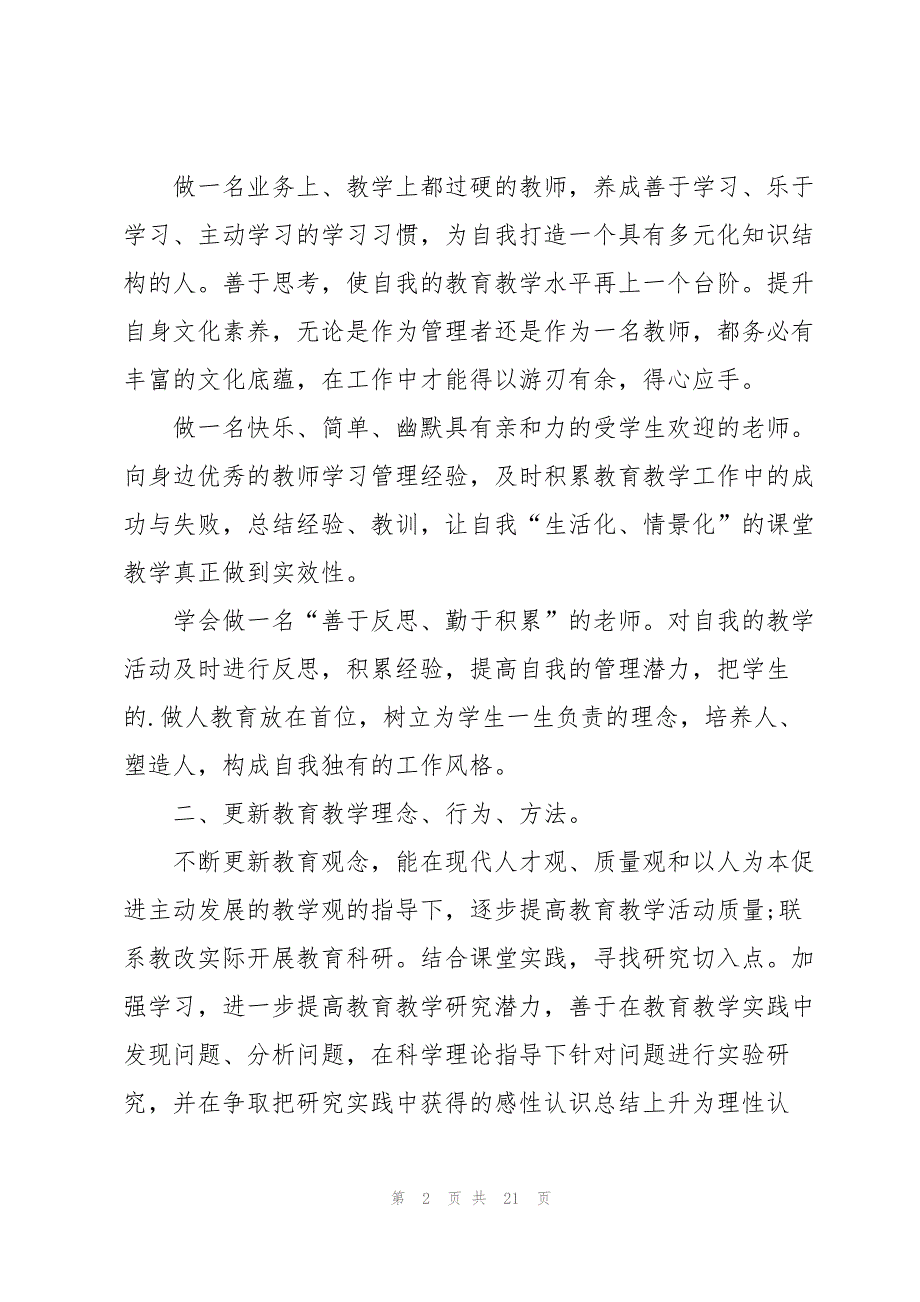 做一名业务上、教学上都过硬的教师，养成善于学习、乐于
学习、主动学习的学习习惯，为自我打造一个具有多元化知识结
构的人。善于思考，使自我的教育教学水平再上一个台阶。提升
自身文化素养，无论是作为管理者还是作为一名教师，都务必有
丰富的文化底蕴，在工作中才能得以游刃有余，得心应手。
做一名快乐、简单、幽默具有亲和力的受学生欢迎的老师。
向身边优秀的教师学习管理经验，及时积累教育教学工作中的成
功与失败，总结经验、教训，让自我“生活化、情景化”的课堂
教学真正做到实效性。
学会做一名“善于反思、勤于积累”的老师。对自我的教学
活动及时进行反思，积累经验，提高自我的管理潜力，把学生
的.做人教育放在首位，树立为学生一生负责的理念，培养人、
塑造人，构成自我独有的工作风格。
二、更新教育教学理念、行为、方法。
不断更新教育观念，能在现代人才观、质量观和以人为本促
进主动发展的教学观的指导下，逐步提高教育教学活动质量;联
系教改实际开展教育科研。结合课堂实践，寻找研究切入点。加
强学习，进一步提高教育教学研究潜力，善于在教育教学实践中
发现问题、分析问题，在科学理论指导下针对问题进行实验研
究，并在争取把研究实践中获得的感性认识总结上升为理性认
第 2 页 共 21 页